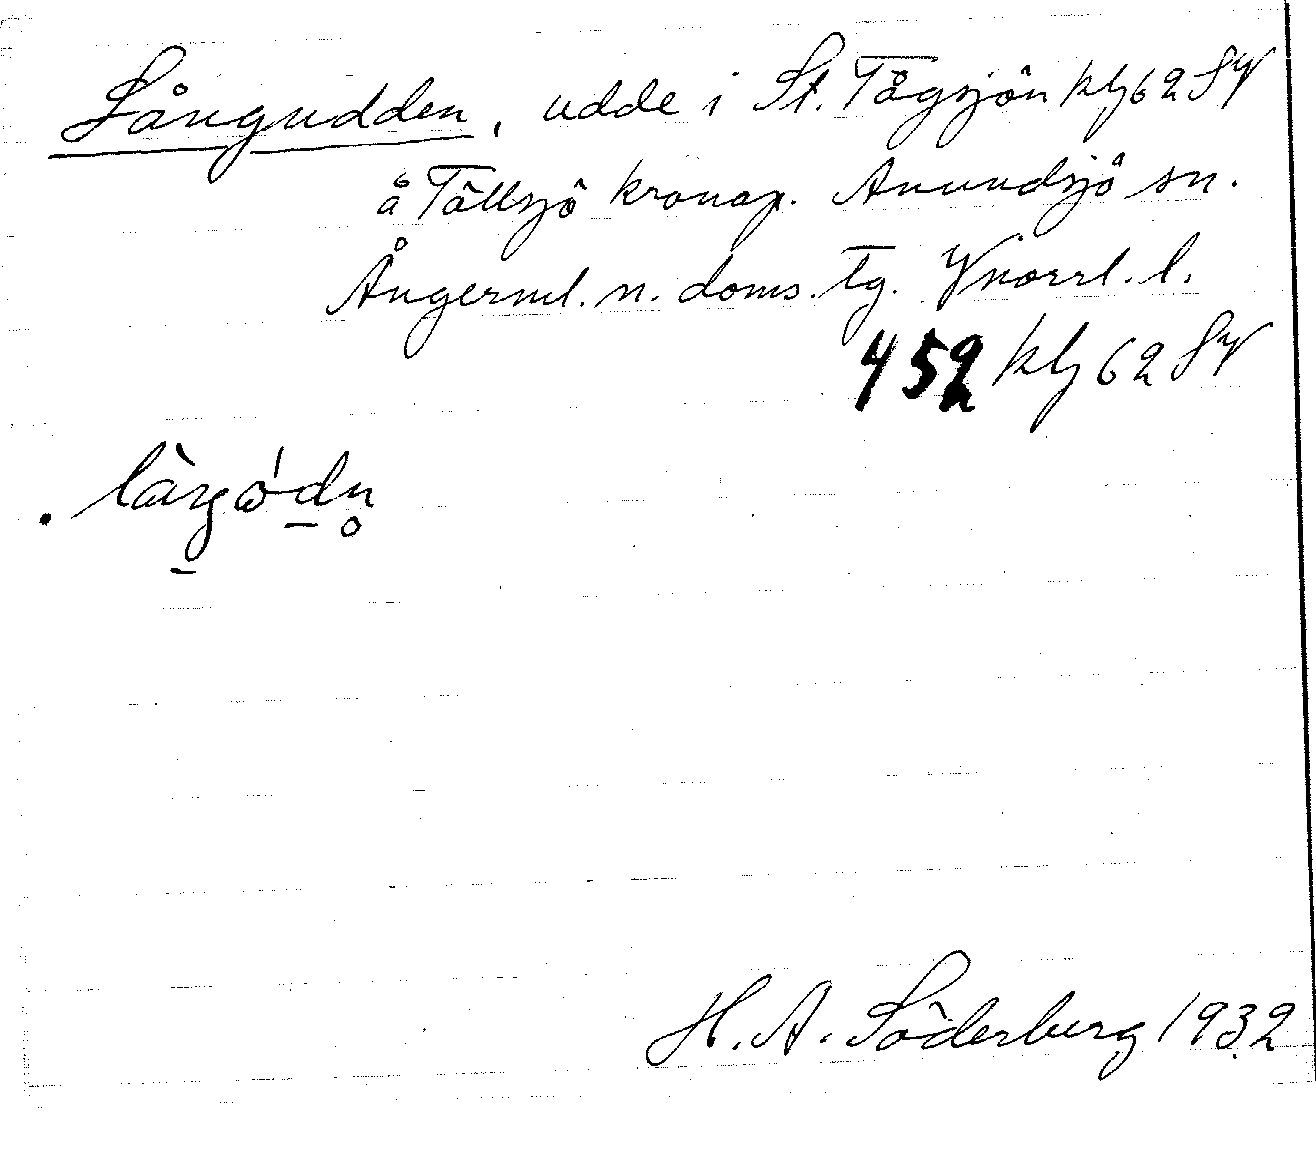 Långudden, udde i St. Tågsjön klj 62 SV
å Tållsjö kronop. Anundsjö sn.
Ångerml. n. doms. tg. Vnorrl. l.
452 klj 62 SV
H. A. Söderberg 1932